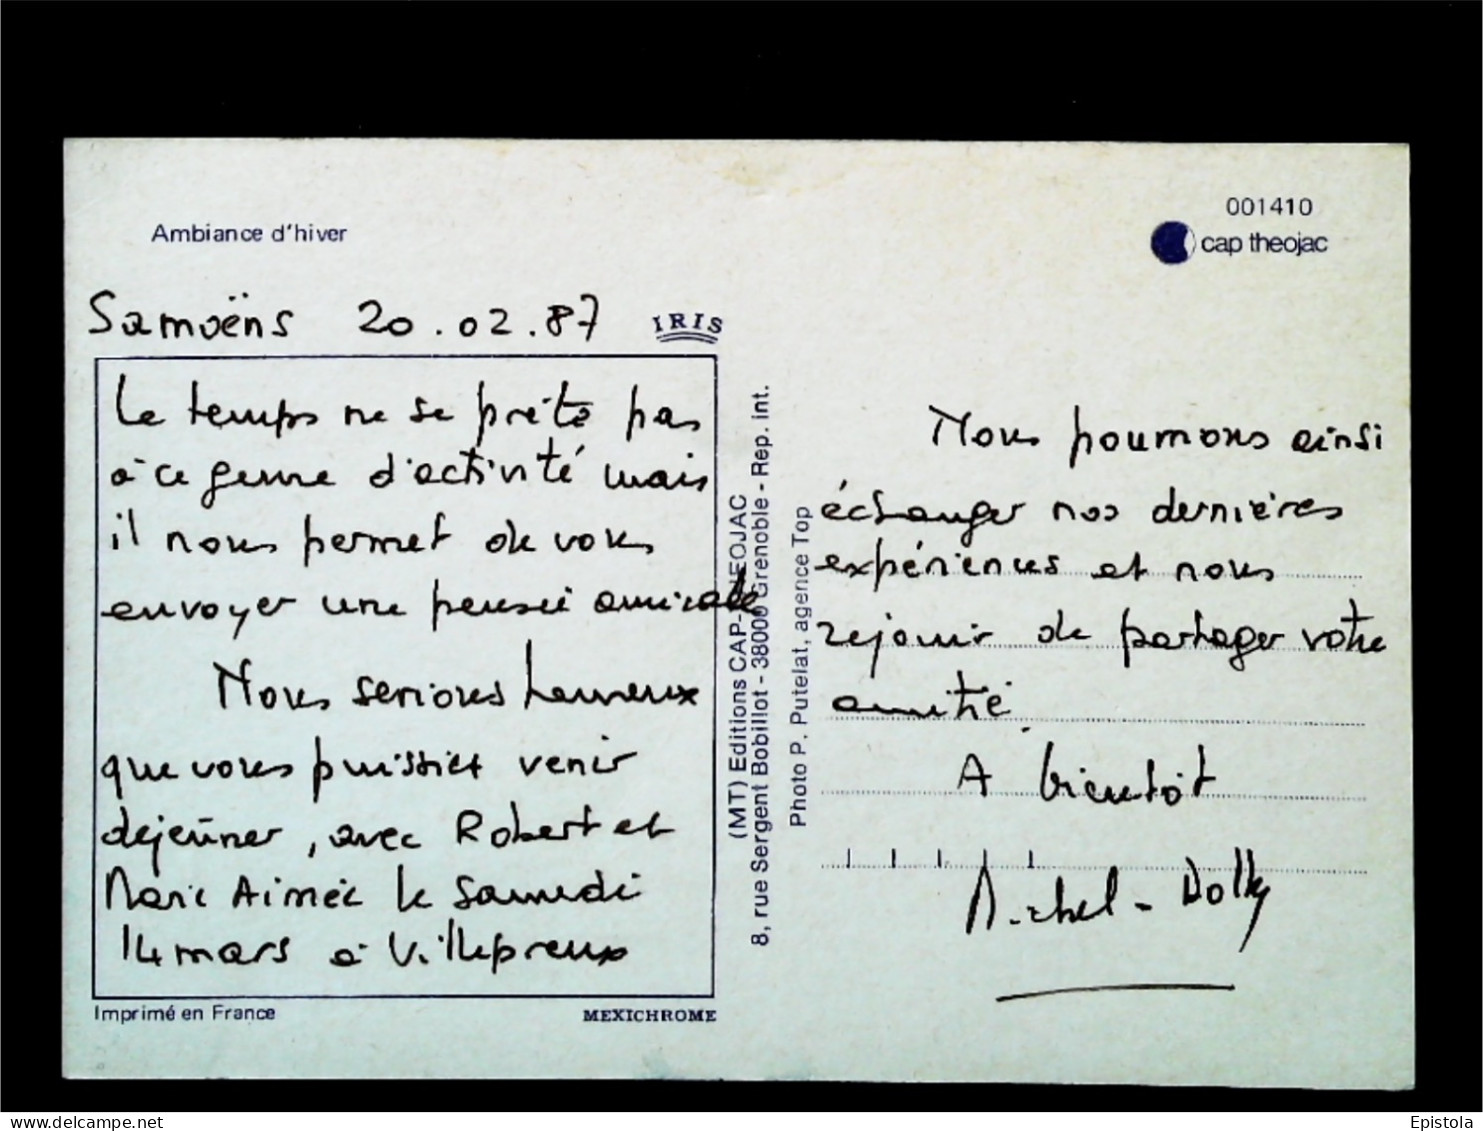 Ambiance d'hiver
001410
cap theojac
Samoëns 20.02.87
IRIS
Le temps ne se prête pas
à ce genre d'activité mais
il nous permet de vous
envoyer une pensée amicale
Nous serions heureux
que vous puissiez venir
dejeûner, avec Robert et
Marie Aimée le samedi
14 mars à Villepreux
Imprimé en France
MEXICHROME
(MT) Editions CAP-THEOJAC
8, rue Sergent Bobillot - 38000 Grenoble - Rep. int.
Photo P. Putelat, agence Top
Nous pourrons ainsi
échanger nos dernières
expériences et nous
rejouir de partager votre
amitié.
A bientôt
Michel - Dolly
delcampe.net
Epistola